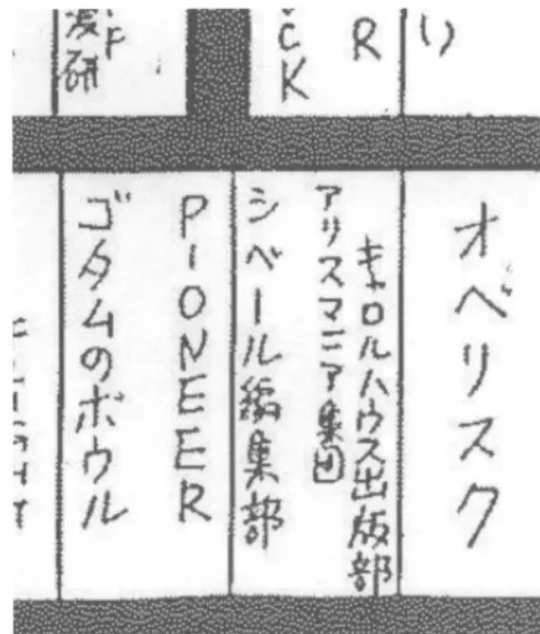 り
R
CK
漫研
オベリスク
キャロルハウス出版部
アリスマニア集団
シベール編集部
PIONEER
ゴタムのボウル